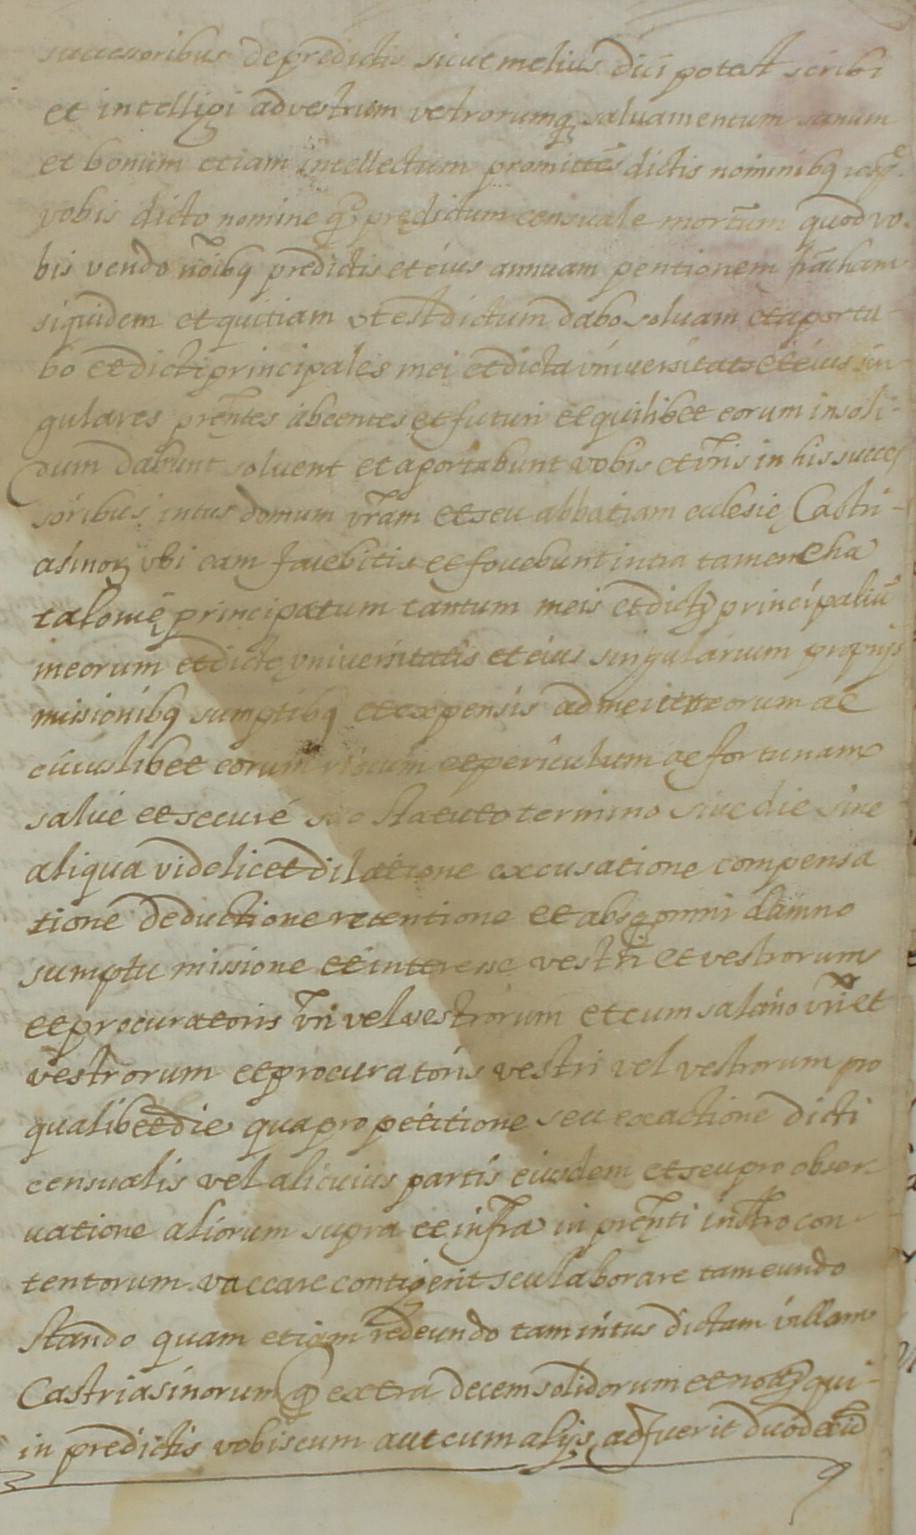 successoribus de predictis sicut melius dici potest scribi
et intelligi ad vestrum vestrorumq; saluamentum sanum
et bonum etiam intellectum promittēs dictis nominibq
vobis dicto nomine q predictum censuale mortuum quod vo-
bis vendo nōibq predictis et eius annuam pentionem francham
siquidem et quitiam ut est dictum dabo soluam et aporta-
bo et dicti principales mei et dicta vniuersitats et eius sin-
gulares prēntes abcentes et futuri et quilibet eorum insoli-
dum dabunt soluent et aportabunt vobis et vr̄is in his succes-
soribus intus domum vr̄am et seu abbatiam eclesie Castri-
asinorȝ vbi eam fauebitis et fouebunt intra tamen Cha
talonie principatum tantum meis et dictȝ principaliū
meorum et dicte vniuersitatis et eius singularium proprijs
missionibq sumptibq et expensis ad mei et eorum ac
cuiuslibet eorum risicum et periculum ac fortunam
salue et secure statuto termino siue die sine
aliqua videlicet dilatione excusatione compensa
tione deductione retentione et absq; omni damno
sumptu missione et interesse vestri et vestrorum
et procuratoris vr̄i vel vestrorum et cum salario vr̄i et
vestrorum et procuratoris vestri vel vestrorum pro
qualibet die qua pro petitione seu exactione dicti
censualis vel alicuius partis eiusdem et seu pro obser-
uatione aliorum supra et infra in prēnti instr̄o con-
tentorum vaccare contigerit seu laborare tam eundo
stando quam etiam redeundo tam intus dictam villam
Castriasinorum q extra decem solidorum et notȝ qui-
in predictis vobiscum aut cum alijs adfuerit duodecim